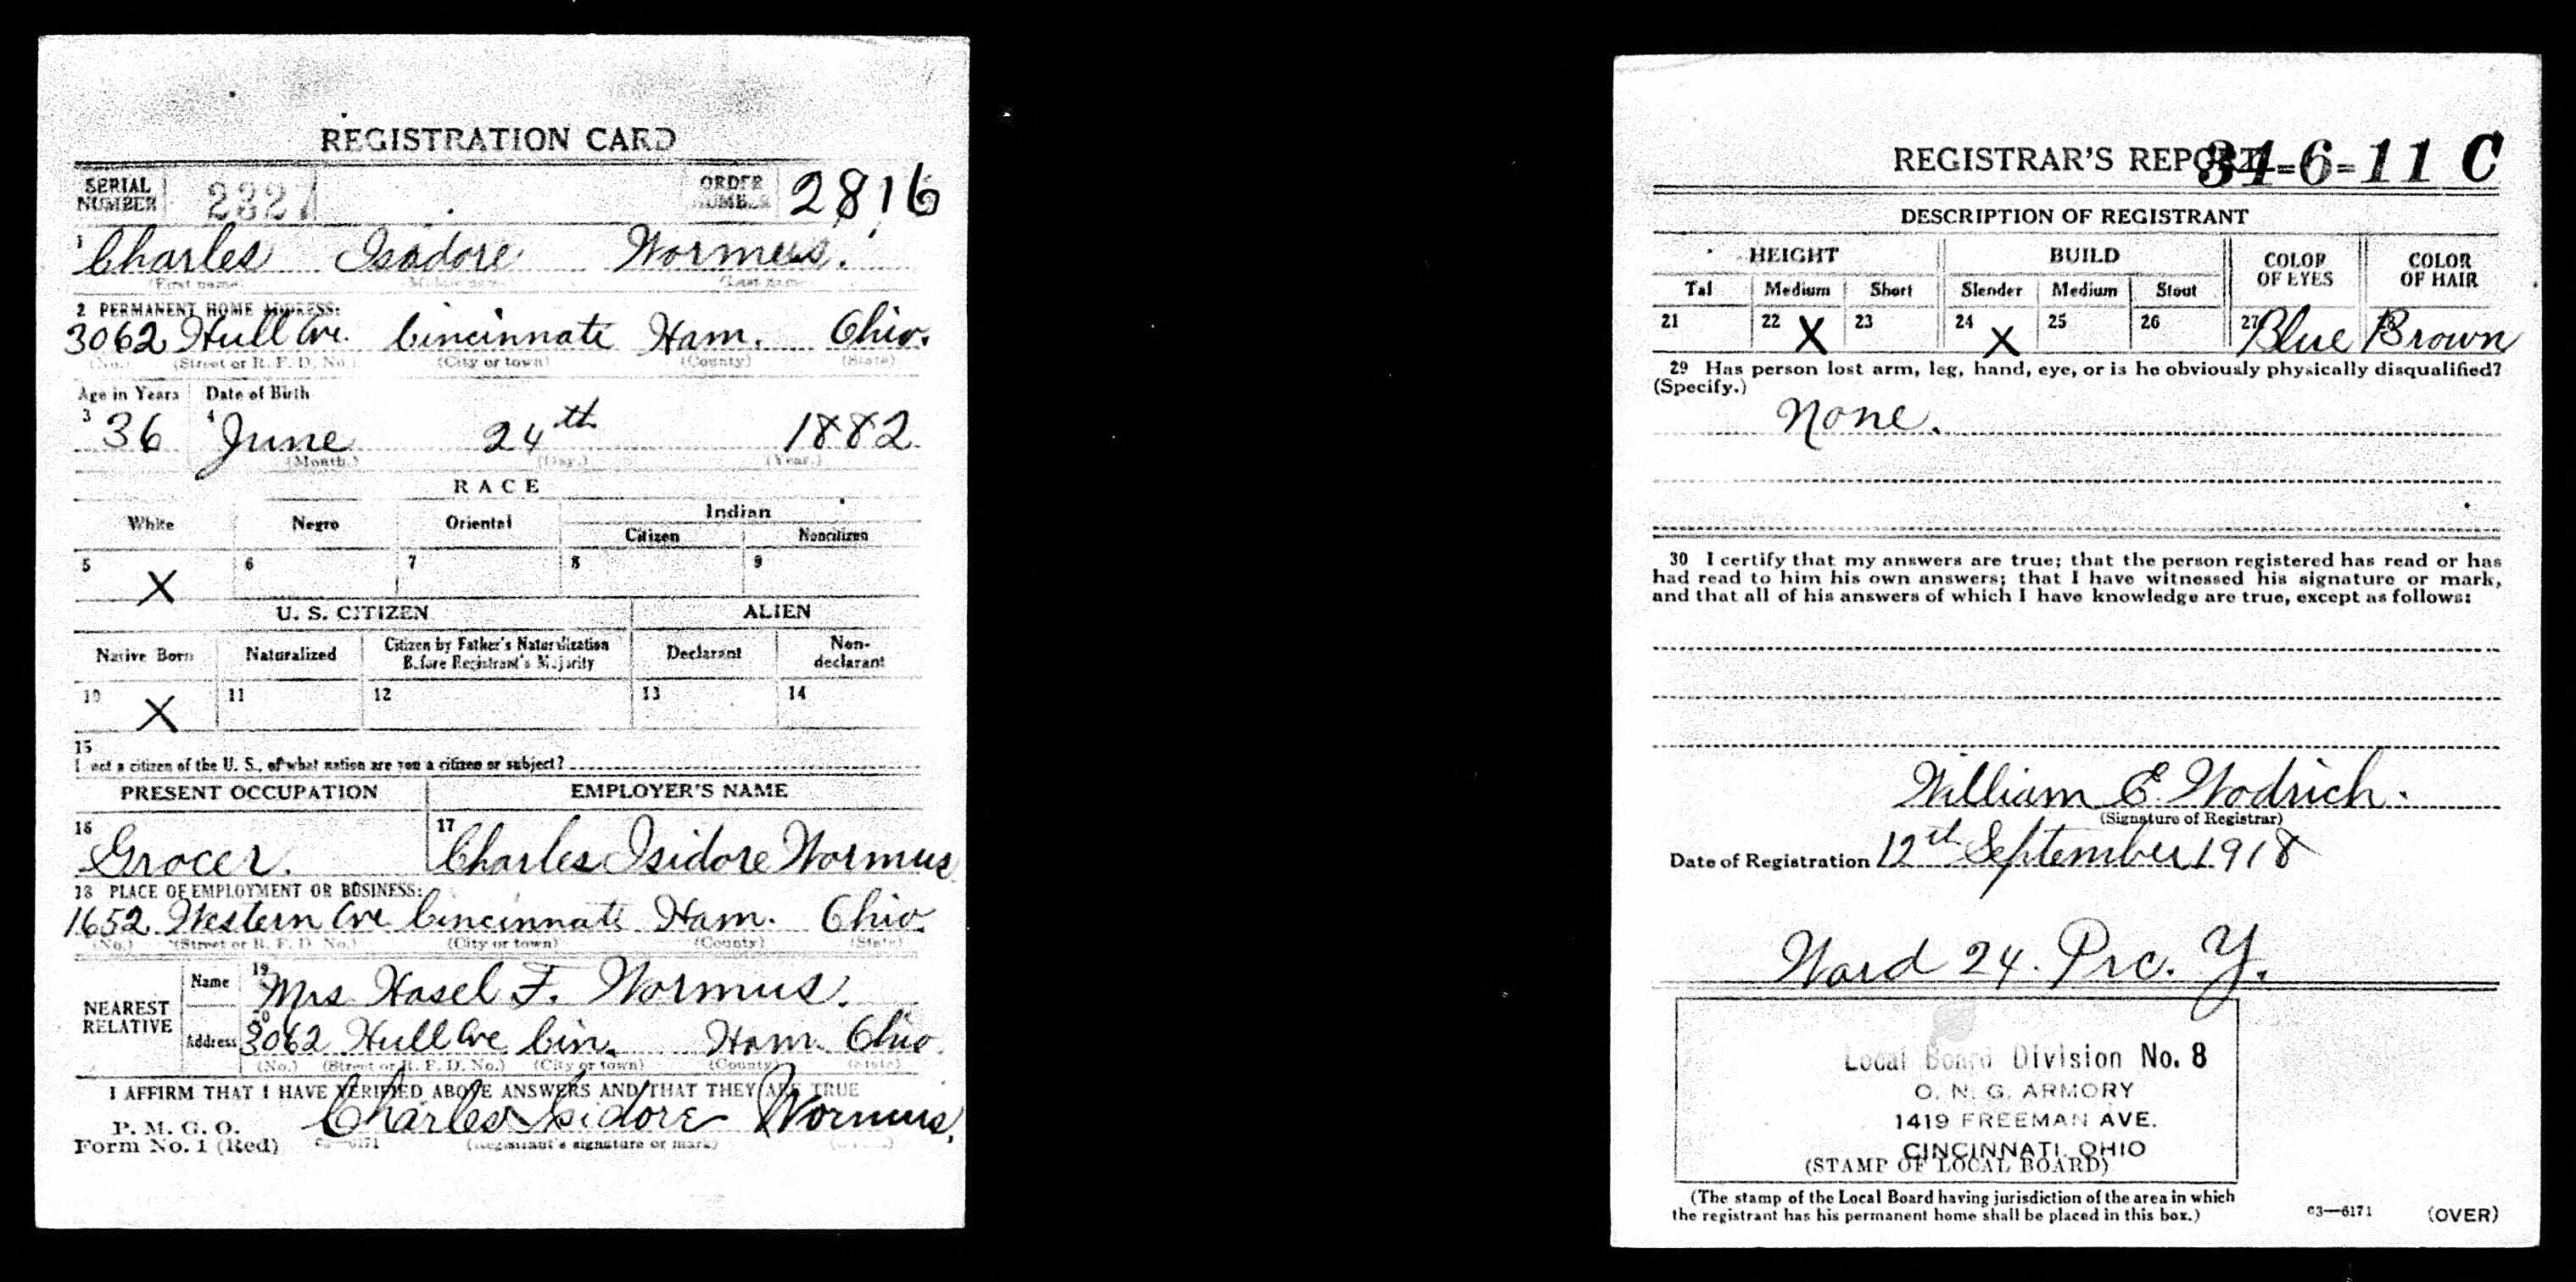 REGISTRATION CARD
SERIAL NUMBER 2327 ORDER NUMBER 2816
1 Charles Isadore Wormus.
(First name) (Middle name) (Last name)
2 PERMANENT HOME ADDRESS:
3062 Hull Ave. Cincinnati Ham. Ohio.
(No.) (Street or R. F. D. No.) (City or town) (County) (State)
Age in Years Date of Birth
3 36 4 June 24th 1882
(Month.) (Day.) (Year.)
RACE
White Negro Oriental Indian
Citizen Noncitizen
5 X 6 7 8 9
U. S. CITIZEN ALIEN
Native Born Naturalized Citizen by Father's Naturalization Before Registrant's Majority Declarant Non-declarant
10 X 11 12 13 14
15
If not a citizen of the U. S., of what nation are you a citizen or subject?
PRESENT OCCUPATION EMPLOYER'S NAME
16 Grocer. 17 Charles Isidore Wormus
18 PLACE OF EMPLOYMENT OR BUSINESS:
1652 Western Ave Cincinnati Ham. Ohio.
(No.) (Street or R. F. D. No.) (City or town) (County) (State)
NEAREST RELATIVE
Name 19 Mrs Hasel F. Wormus.
Address 20 3062 Hull Ave Cin. Ham. Ohio.
(No.) (Street or R. F. D. No.) (City or town) (County) (State)
I AFFIRM THAT I HAVE VERIFIED ABOVE ANSWERS AND THAT THEY ARE TRUE
P. M. G. O.
Form No. 1 (Red) 03—6171 Charles Isidore Wormus.
(Registrant's signature or mark)
REGISTRAR'S REPORT 34-6-11 C
DESCRIPTION OF REGISTRANT
HEIGHT BUILD COLOR OF EYES COLOR OF HAIR
Tall Medium Short Slender Medium Stout
21 22 X 23 24 X 25 26 27 Blue 28 Brown
29 Has person lost arm, leg, hand, eye, or is he obviously physically disqualified?
(Specify.)
None.
30 I certify that my answers are true; that the person registered has read or has
had read to him his own answers; that I have witnessed his signature or mark,
and that all of his answers of which I have knowledge are true, except as follows:
William E. Wodrich.
(Signature of Registrar)
Date of Registration 12th September 1918
Ward 24. Prc. Y.
Local Board Division No. 8
O. N. G. ARMORY
1419 FREEMAN AVE.
CINCINNATI, OHIO
(STAMP OF LOCAL BOARD)
(The stamp of the Local Board having jurisdiction of the area in which
the registrant has his permanent home shall be placed in this box.)
03—6171 (OVER)